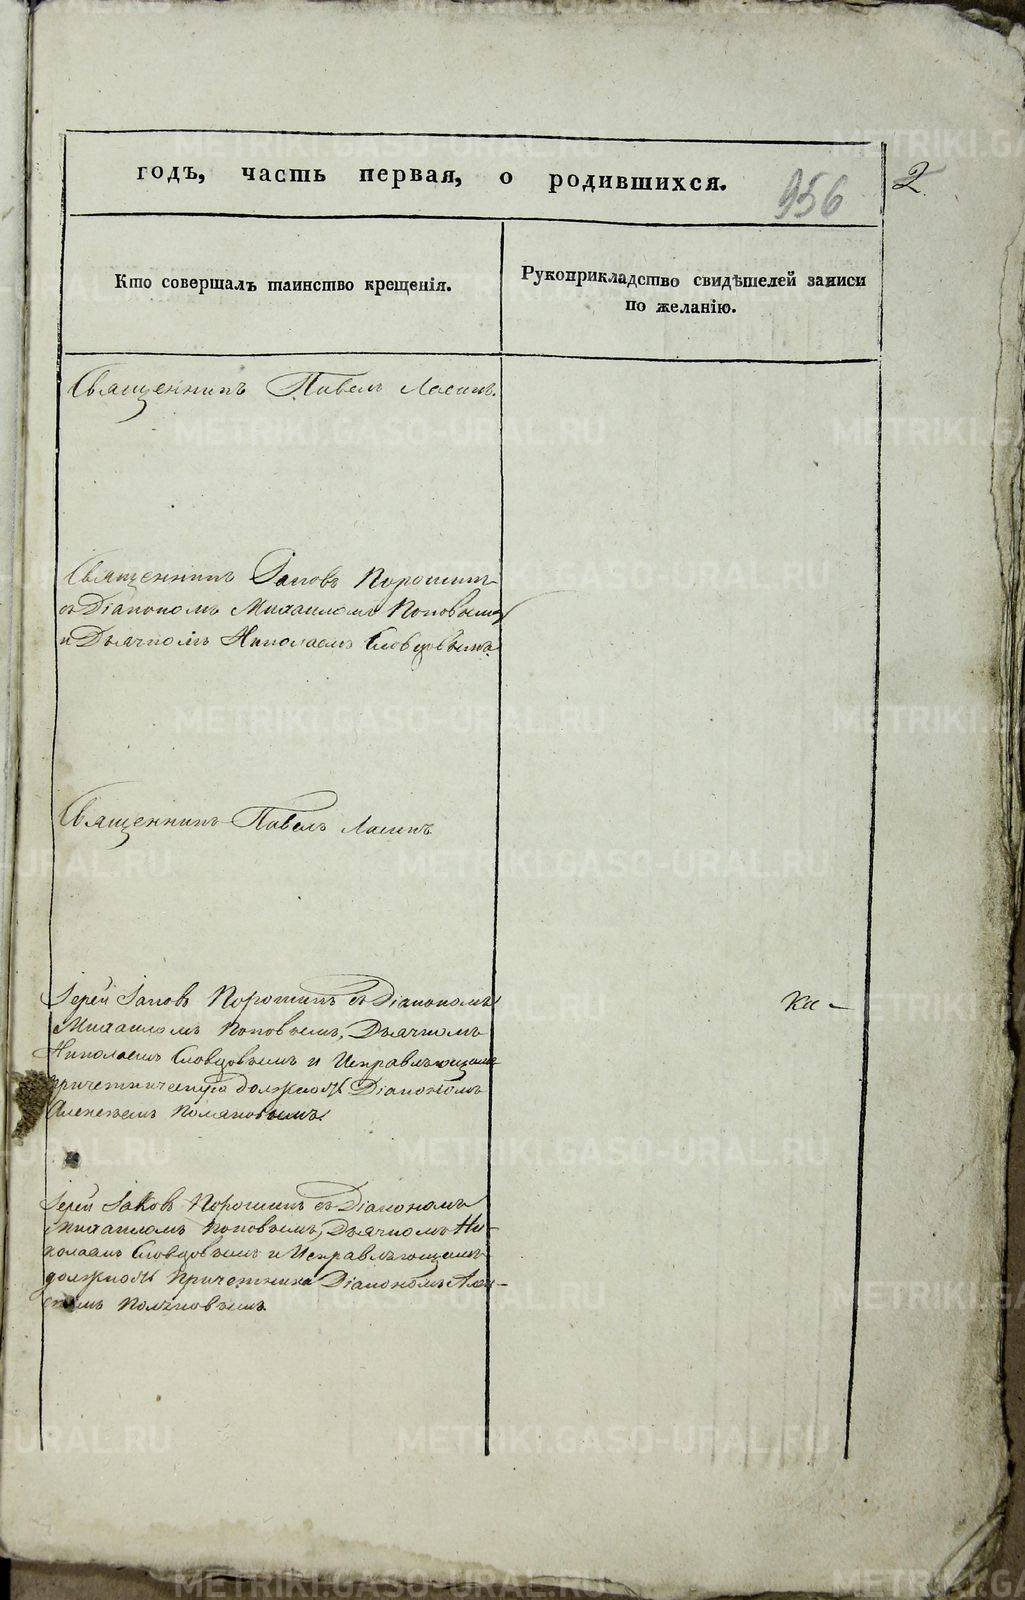 годъ, часть первая, о родившихся.
956
2
Кто совершалъ таинство крещенія.
Рукоприкладство свидѣтелей записи
по желанію.
Священникъ Павелъ
Священникъ Іаковъ Порошинъ
съ Діакономъ Михаиломъ Поповымъ
и Дьячкомъ Николаемъ Словцовымъ
Священникъ Павелъ
Іерей Іаковъ Порошинъ съ Діакономъ
Михаиломъ Поповымъ, Дьячкомъ
Николаемъ Словцовымъ и Исправляющимъ
причетническую должность Діакономъ
Алексѣемъ
Іерей Іаковъ Порошинъ съ Діакономъ
Михаиломъ Поповымъ, Дьячкомъ Ни-
колаемъ Словцовымъ и Исправляющимъ
должность Причетника Діакономъ Алек-
сѣемъ
METRIKI.GASO-URAL.RU